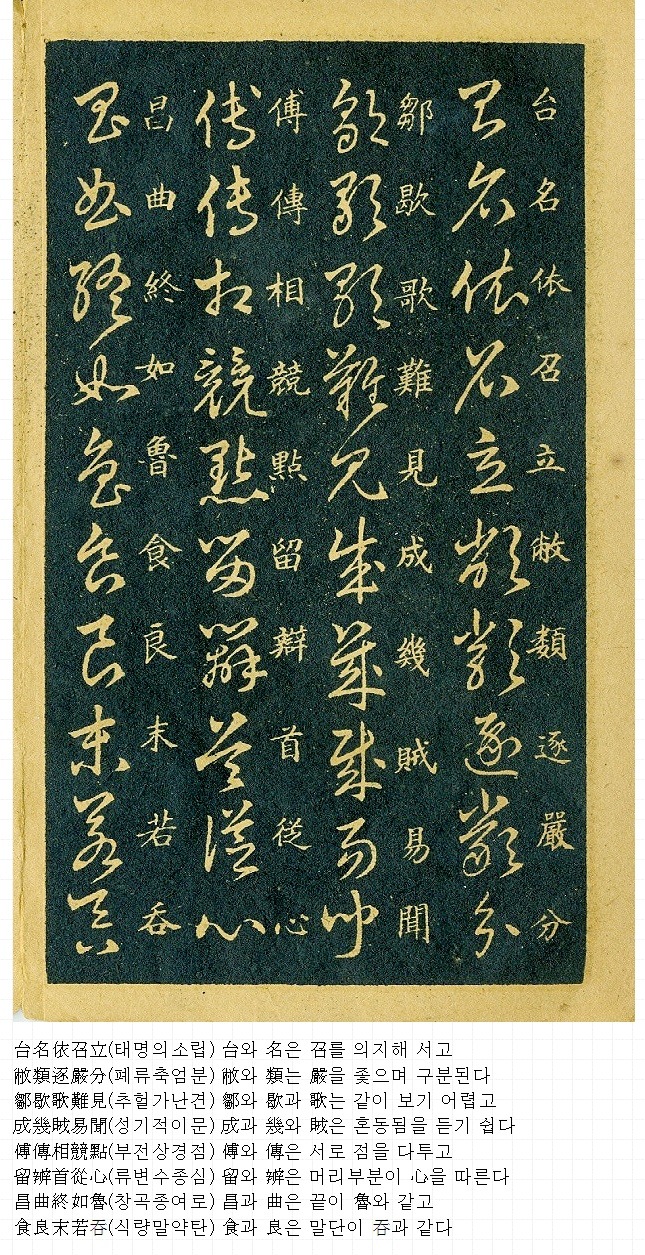 台名依召立敝類逐嚴分
台名依召立敝類逐嚴分
鄒歇歌難見成幾賊易聞
鄒歇歌難見成幾賊易聞
傅傳相競點留辯首從心
傅傳相競點留辯首從心
昌曲終如魯食良末若呑
昌曲終如魯食良末若呑
台名依召立(태명의소립) 台와 名은 召를 의지해 서고
敝類逐嚴分(폐류축엄분) 敝와 類는 嚴을 좇으며 구분된다
鄒歇歌難見(추헐가난견) 鄒와 歇과 歌는 같이 보기 어렵고
成幾賊易聞(성기적이문) 成과 幾와 賊은 혼동됨을 듣기 쉽다
傅傳相競點(부전상경점) 傅와 傳은 서로 점을 다투고
留辨首從心(류변수종심) 留와 辨은 머리부분이 心을 따른다
昌曲終如魯(창곡종여로) 昌과 曲은 끝이 魯와 같고
食良末若呑(식량말약탄) 食과 良은 말단이 呑과 같다